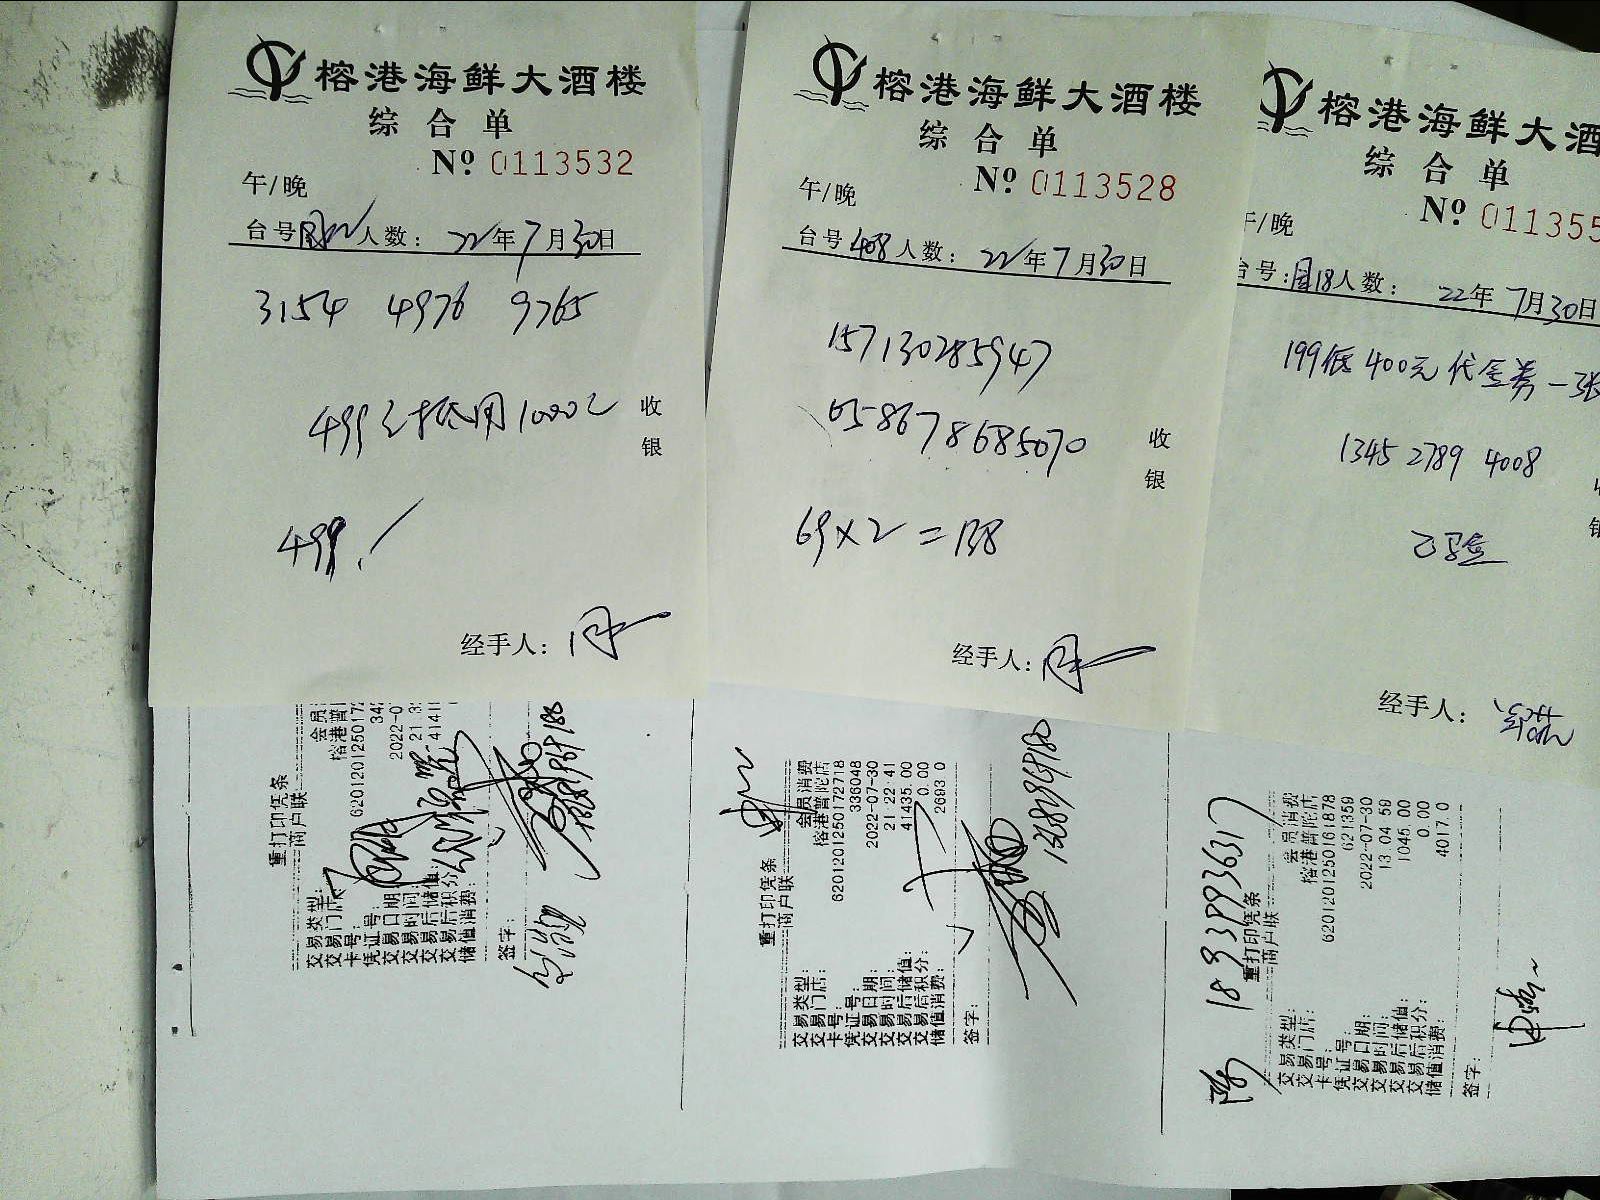 榕港海鲜大酒楼
综合单
Nº 0113532
午/晚
台号 人数： 22年7月30日
3154 4976 9765
499元抵用1000元
收银
499.
经手人：
榕港海鲜大酒楼
综合单
Nº 0113528
午/晚
台号 408 人数： 22年7月30日
157130285947
058678685070
收银
69×2=138
经手人：
榕港海鲜大酒
综合单
Nº 011355
午/晚
台号： 18人数： 22年7月30日
199抵400元代金券一张
1345 2789 4008
已验
经手人：
重打印凭条
商户联
交易类型： 会员
交易门店： 榕港普
卡号： 6201201250172
凭证号： 34
交易日期： 2022-0
交易时间： 21
交易后储值：
交易后积分：
储值消费：
签字：
重打印凭条
商户联
交易类型： 会员消费
交易门店： 榕港普陀店
卡号： 6201201250172718
凭证号： 336048
交易日期： 2022-07-30
交易时间： 21 22 41
交易后储值： 41435.00
交易后积分： 0.00
储值消费： 2693.0
签字：
18939936317
重打印凭条
商户联
交易类型： 会员消费
交易门店： 榕港普陀店
卡号： 6201201250161878
凭证号： 621359
交易日期： 2022-07-30
交易时间： 13 04 59
交易后储值： 1045.00
交易后积分： 0.00
储值消费： 4017.0
签字：